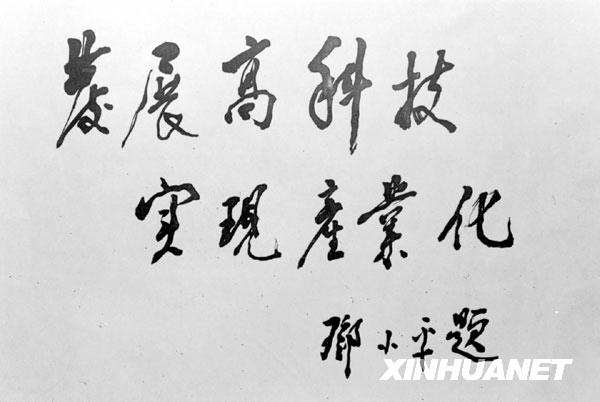 發展高科技
实现産業化
鄧小平題
XINHUANET